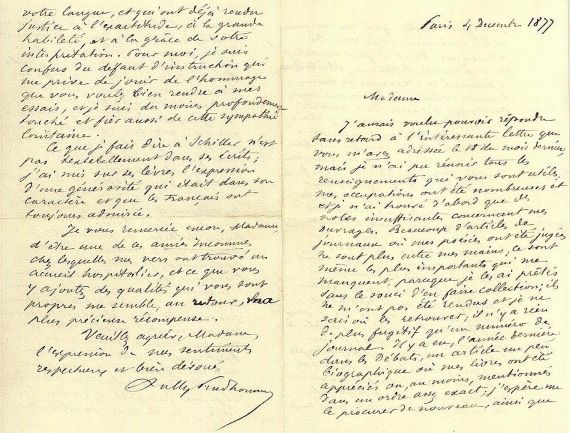 Paris 4 décembre 1877
Madame
J'aurais voulu pouvoir répondre
sans retard à l'intéressante lettre que
vous m'avez adressée le 18 du mois dernier,
mais je n'ai pu réunir tous les
renseignements qui vous sont utiles;
mes occupations ont été nombreuses et
et je n'ai trouvé d'abord que des
notes insuffisantes concernant mes
ouvrages. Beaucoup d'articles de
journaux où mes poésies ont été jugées
ne sont plus entre mes mains, ce sont
même les plus importants qui me
manquent, parceque je les ai prêtés
sans le souci d'en faire collection; ils
ne m'ont pas été rendus et je ne
sais où les retrouver; il n'y a rien
de plus fugitif qu'un numéro de
journal. Il y a eu, l'année dernière
dans les Débats, un article un peu
biographique où mes livres ont été
appréciés ou, au moins, mentionnés
dans un ordre assez exact; j'espère me
le procurer de nouveau, ainsi que
votre langue, et qui ont déjà rendu
justice à l'exactitude, à la grande
habileté et à la grâce de votre
interprétation. Pour moi, je suis
confus du défaut d'instruction qui
me prive de jouir de l'hommage
que vous voulez bien rendre à mes
essais, et je suis du moins profondément
touché et fier aussi de cette sympathie
lointaine.
Ce que je fais dire à Schiller n'est
pas textuellement dans ses écrits;
j'ai mis sur ses lèvres l'expression
d'une générosité qui était dans son
caractère et que les Français ont
toujours admirée.
Je vous remercie encore, Madame
d'être une de ces amies inconnues
chez lesquelles mes vers ont trouvé un
accueil hospitalier, et ce que vous
y ajoutez des qualités qui vous sont
propres me semble, au retour, ma
plus précieuse récompense.
Veuillez agréer, Madame,
l'expression de mes sentiments
respectueux et bien dévoués
Sully Prudhomme